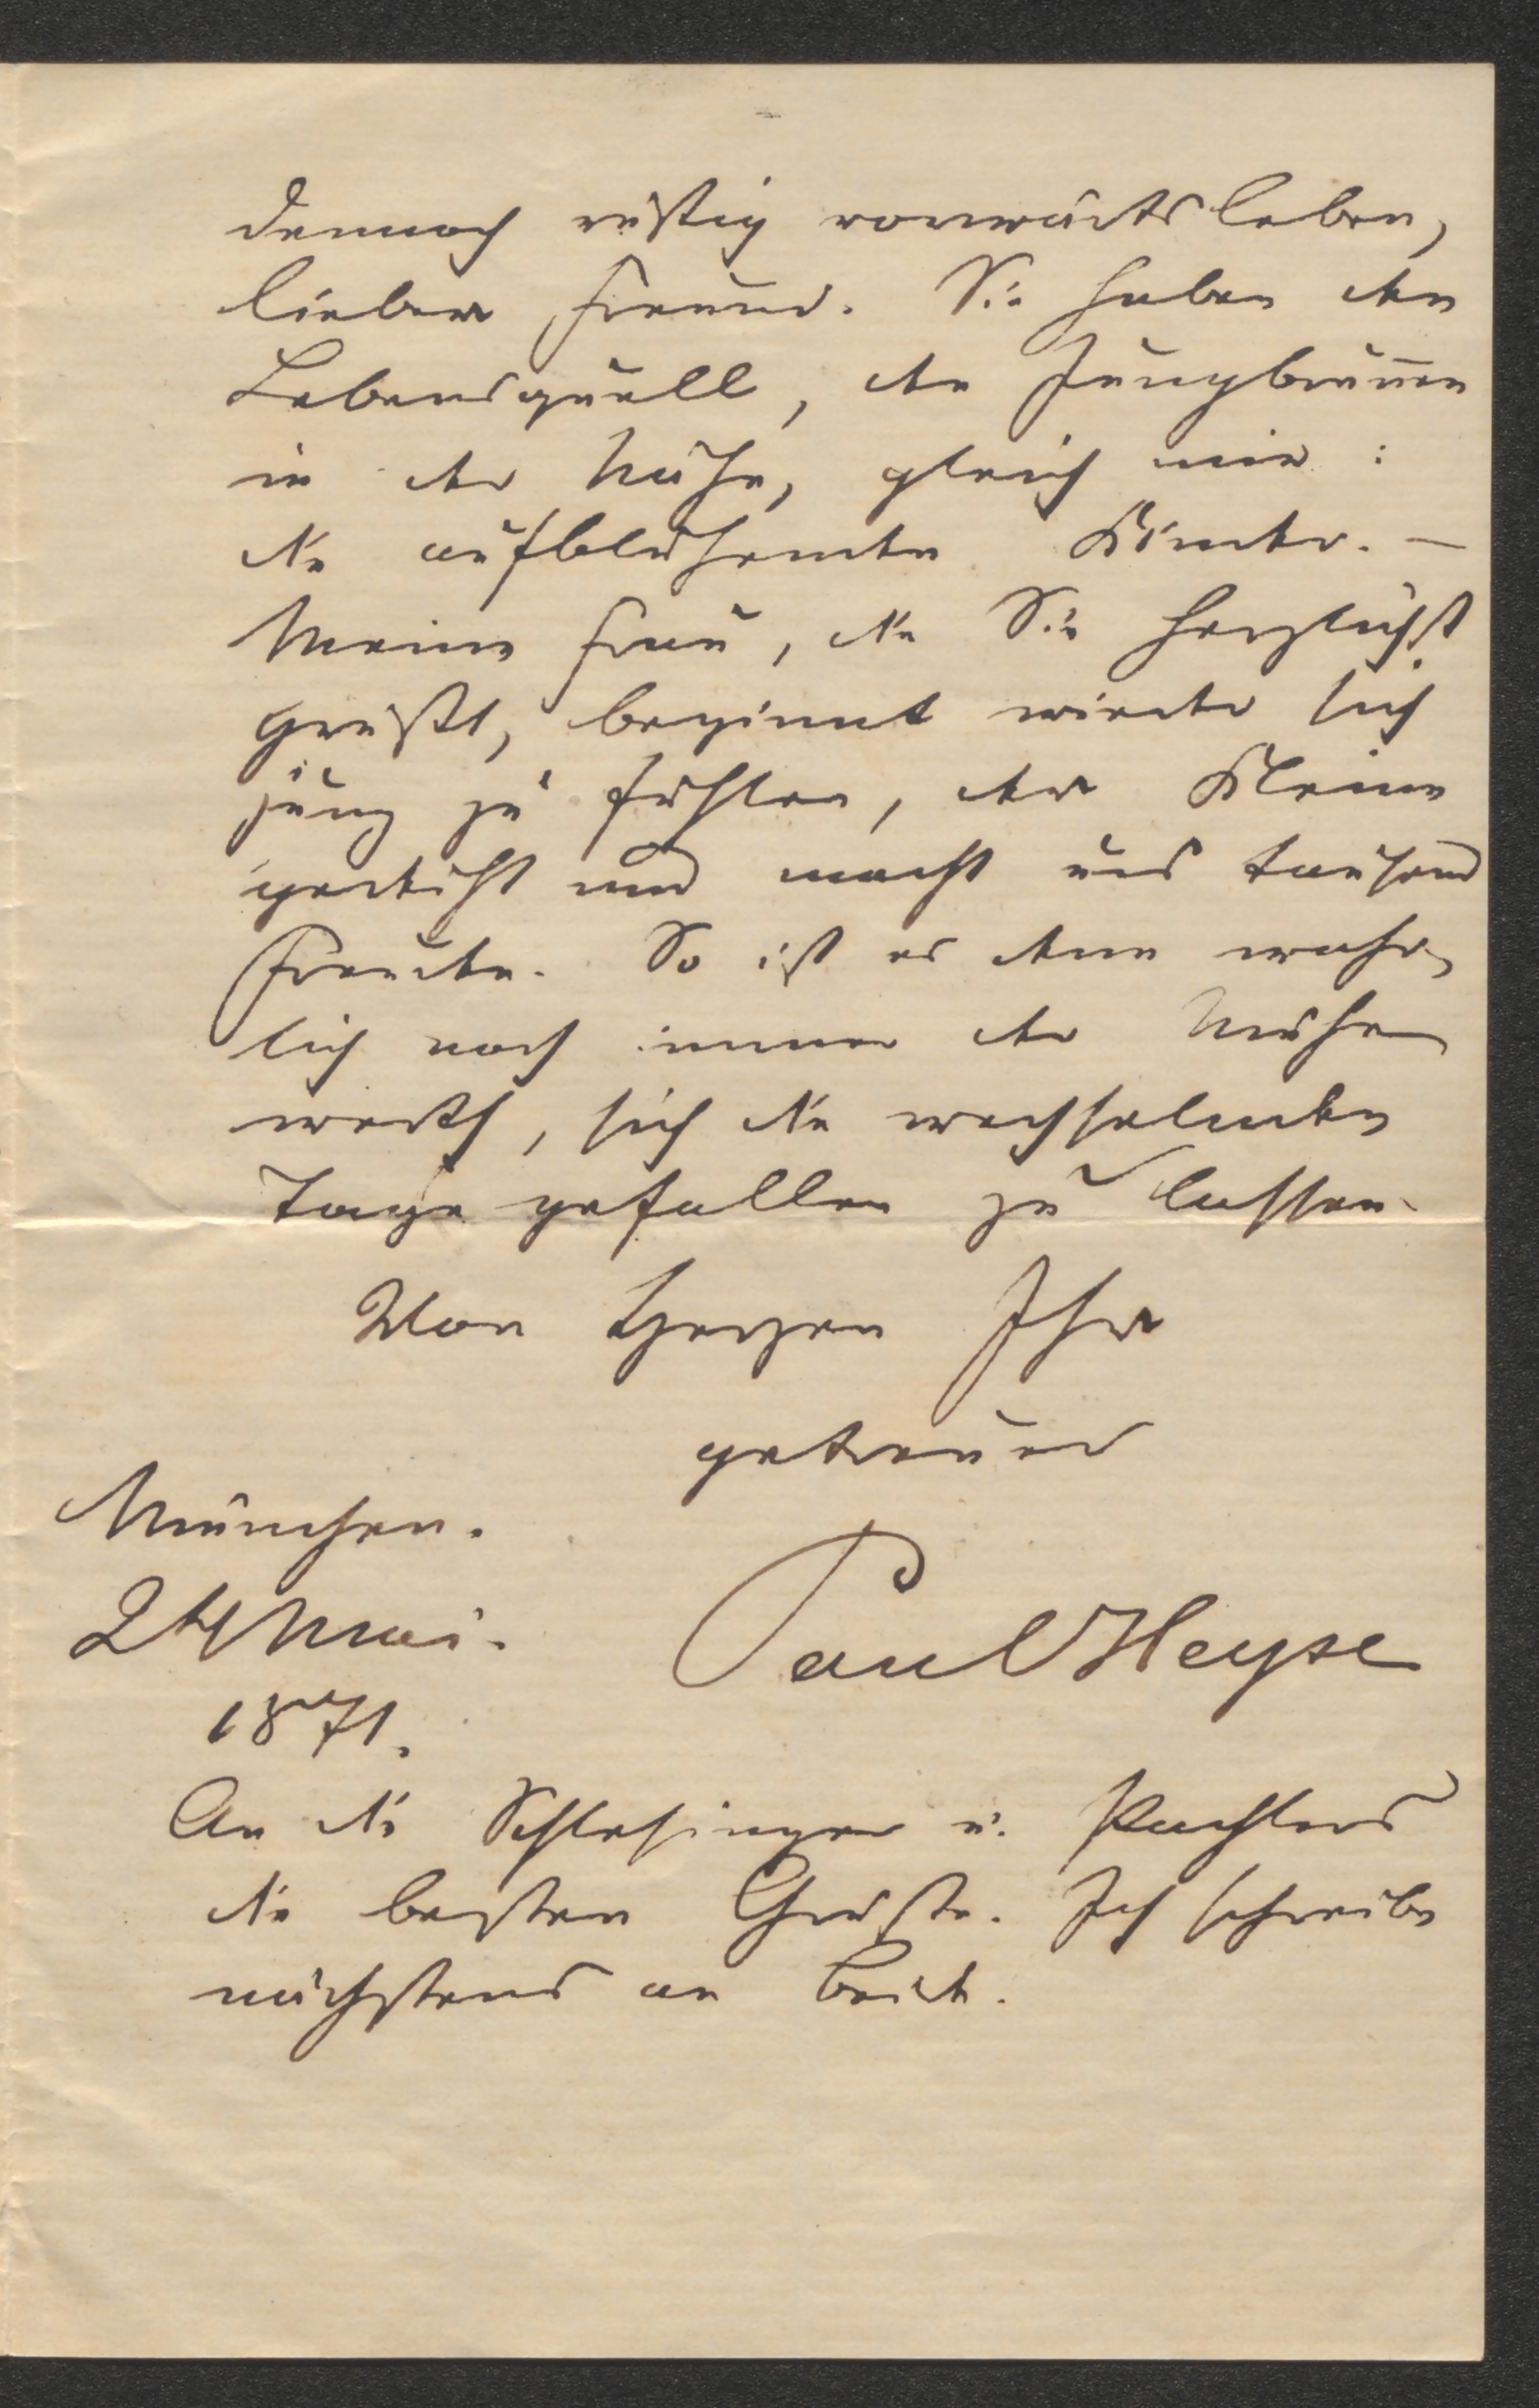 dennoch rüstig vorwärts leben,
lieber Freund. Sie haben den
Lebensquell, den Jungbrun̄en
in der Nähe, gleich mir:
die aufblühenden Kinder. —
Meine Frau, die Sie herzlichst
grüßt, beginnt wieder sich
jung zu fühlen, der Kleine
gedeiht und macht uns tausend
Freuden. So ist es denn wahr-
lich noch immer der Mühe
werth, sich die wechselnden
Tage gefallen zu lassen.
Von Herzen Ihr
getreuer
München.
24 Mai.
1871.
Paul Heyse
An die Schlesinger u. Pachlers
die besten Grüße. Ich schreibe
nächstens an beide.